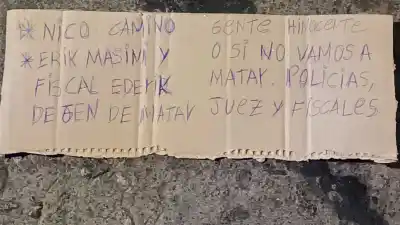 * NICO CAMINO
* ERIK MASINI Y
FISCAL EDERY
DEGEN DE MATAR
GENTE HINOCENTE
O SI NO VAMOS A
MATAR. POLICIAS,
JUEZ Y FISCALES